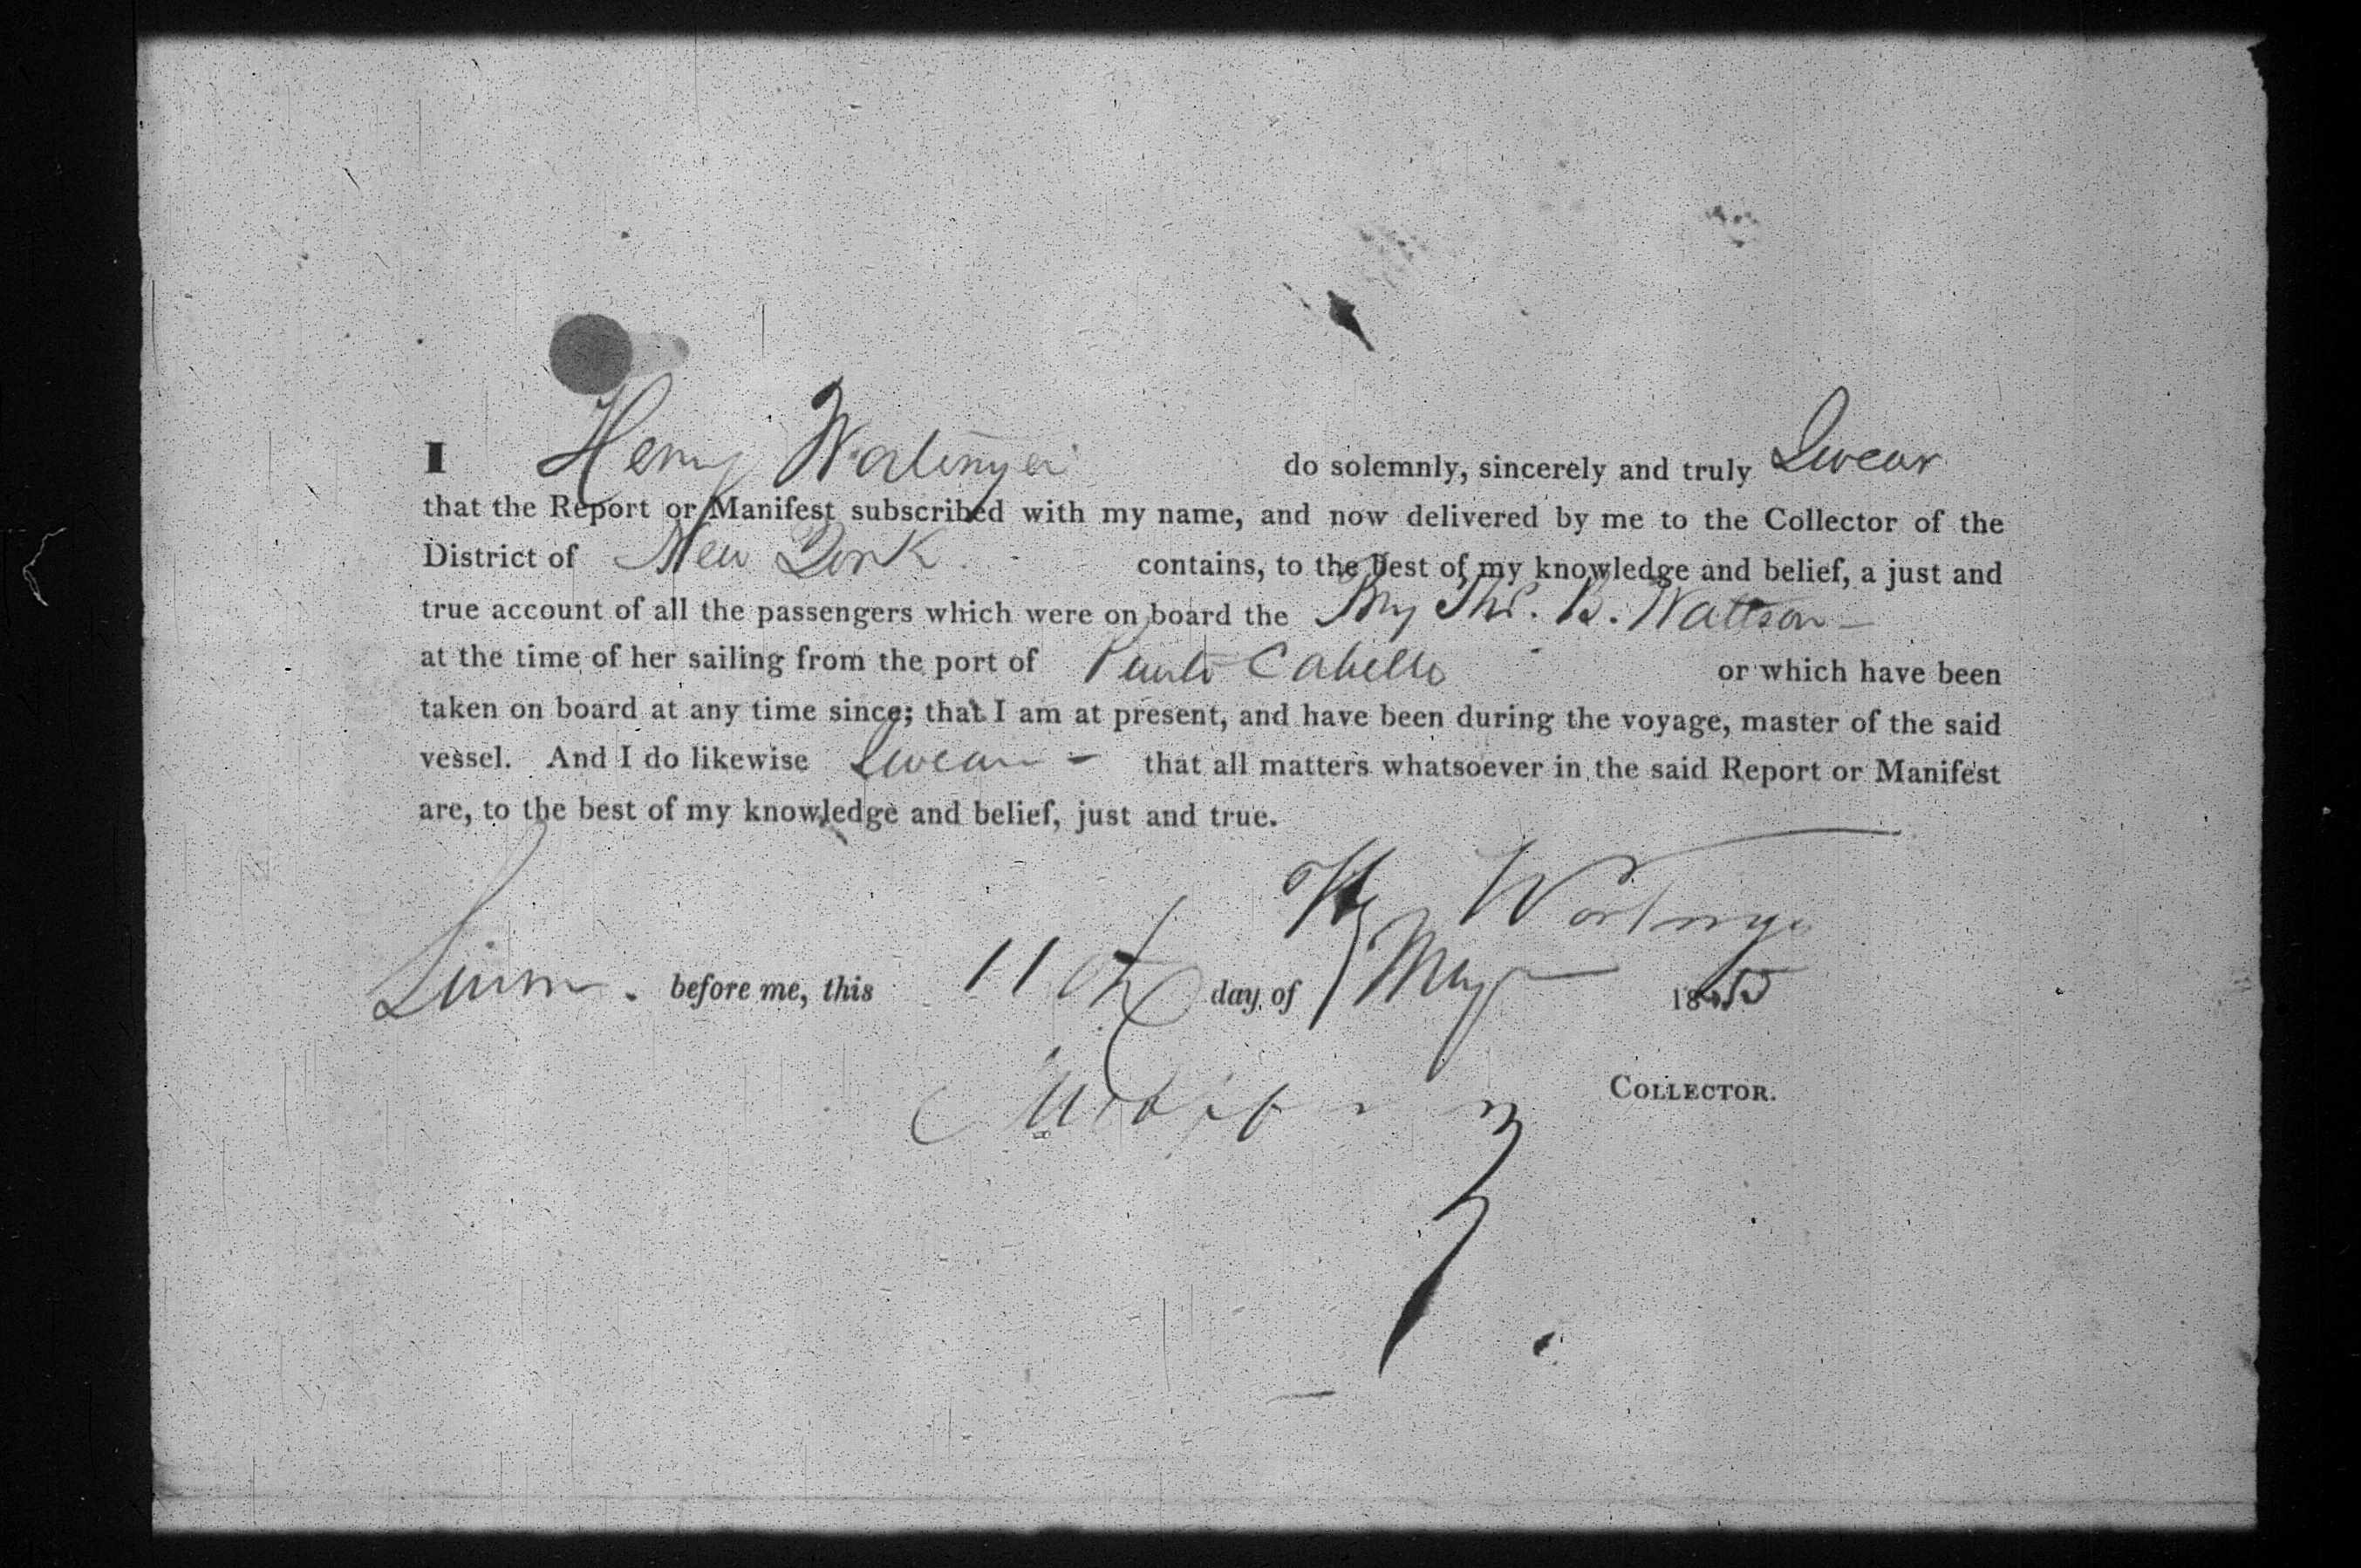 I Henry do solemnly, sincerely and truly Swear
that the Report or Manifest subscribed with my name, and now delivered by me to the Collector of the
District of New York contains, to the best of my knowledge and belief, a just and
true account of all the passengers which were on board the B. Wattson
at the time of her sailing from the port of Cabello or which have been
taken on board at any time since; that I am at present, and have been during the voyage, master of the said
vessel. And I do likewise Swear - that all matters whatsoever in the said Report or Manifest
are, to the best of my knowledge and belief, just and true.
Hy
Sworn before me, this 11th day of May 18
COLLECTOR.